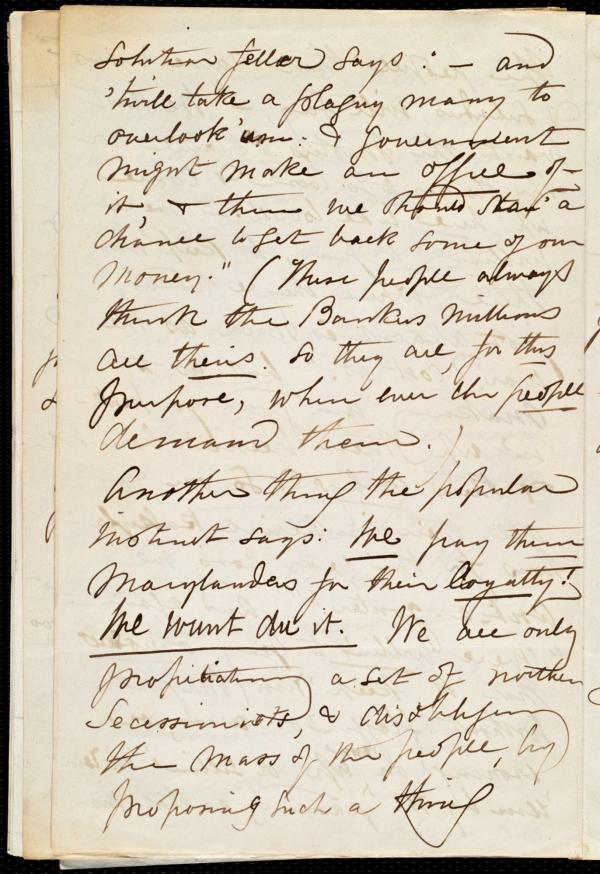 solution feller says: — and
'twill take a plaguy many to
overlook 'um: & government
might make an office of
it, & then we should stan' a
chance to get back some of our
money." (These people always
think the Bankers millions
are theirs. So they are, for this
purpose, when ever the people
demand them.)
Another thing the popular
instinct says: We pay them
Marylanders for their loyalty!
We wunt du it. We are only
propitiating a set of northern
Secessionists, & dissatisfying
the mass of the people, by
proposing such a thing